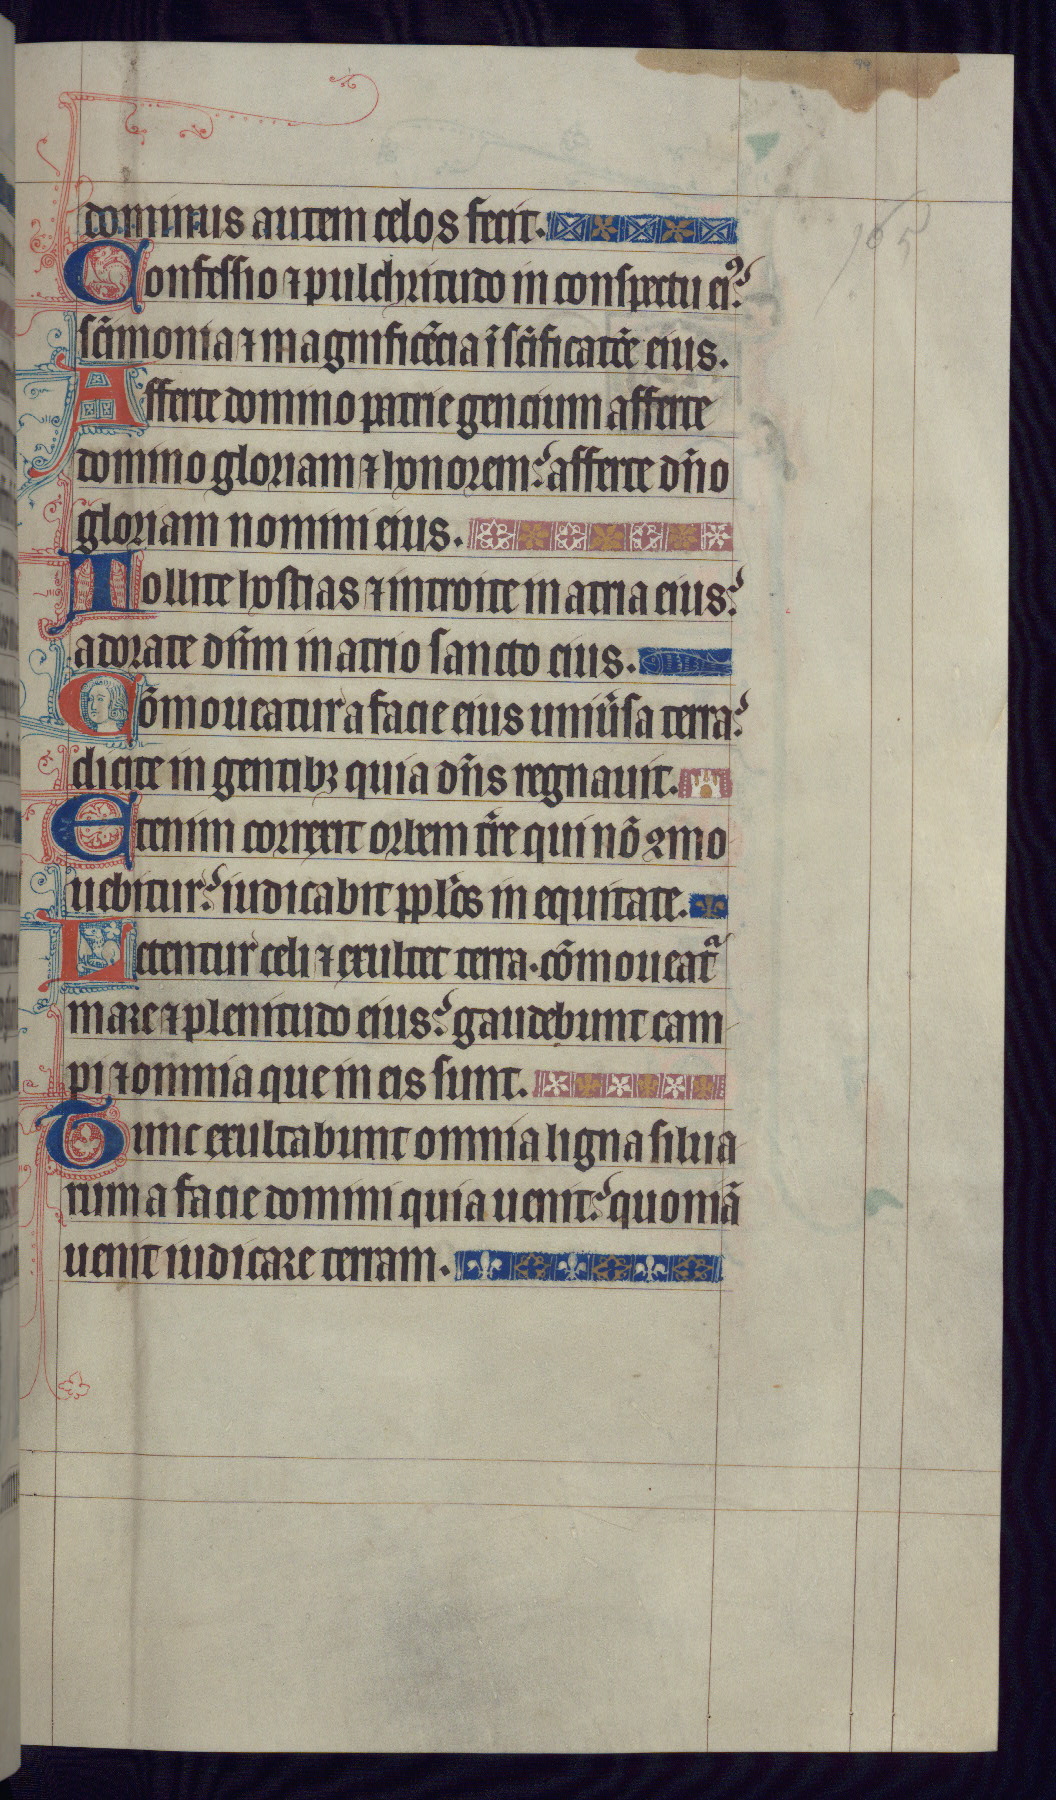 dominus autem celos fecit.
Confessio ⁊ pulchritudo in conspectu eiꝰ:
sc̄imonia ⁊ magnificēcia ī sc̄ificatōe eius.
Afferte domino patrie gencium afferte
domino gloriam ⁊ honorem: afferte dn̄o
gloriam nomini eius.
Tollite hostias ⁊ introite in atria eius:
adorate dn̄m in atrio sancto eius.
Cōmoueatur a facie eius uniu̅sa terra:
dicite in gentibꝫ quia dn̄s regnauit.
Etenim correxit orbem tr̄e qui nō ꝯmo
uebitur: iudicabit pp̄los in equitate.
Letentur celi ⁊ exultet terra. cōmoueatᷓ
mare ⁊ plenitudo eius: gaudebunt cam
pi ⁊ omnia que in eis sunt.
Tunc exultabunt omnia ligna silua
rum a facie domini quia uenit: quoniā
uenit iudicare terram.
165